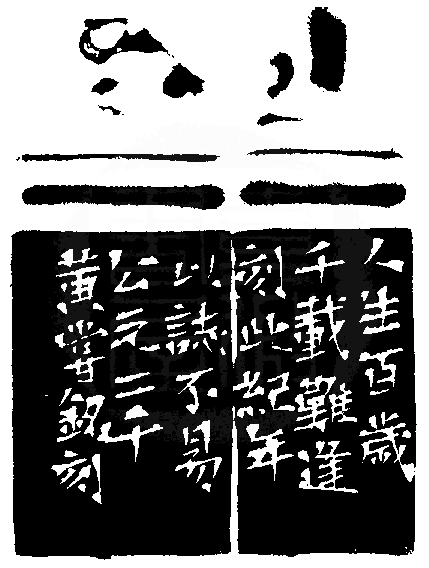 人生百歲
千載難逢
刻此紀年
以誌不易
公元二千
黃嘗銘刻